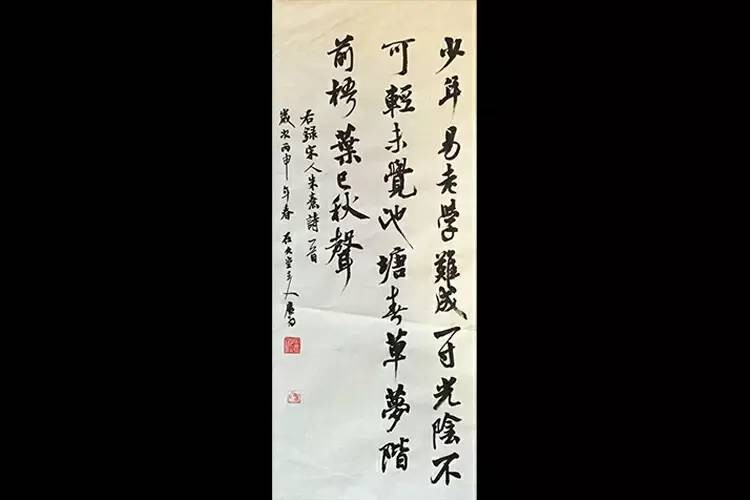 少年易老学難成一寸光陰不
可輕未覺池塘春草夢階
前梧葉已秋聲
右録宋人朱熹詩一首
歲次丙申年春